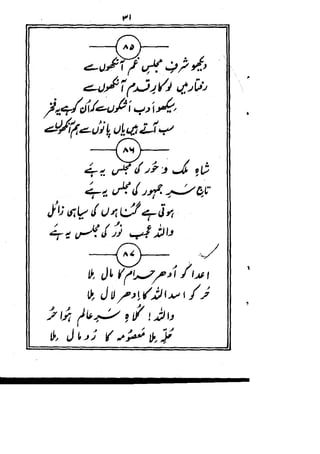 ۳۱
۸۵
دیکھو شرفِ مجلسِ غم آنکھوں سے
رفتار میں لو کارِ قدم آنکھوں سے
سیکھو ادب اشکوں سے کہ ان کو ہے یہ فخر
سب آتے ہیں یاں پاؤں سے ہم آنکھوں سے
۸۶
شاہِ ملک و حور کی مجلس یہ ہے
تاجِ سرِ جمہور کی مجلس یہ ہے
ہوتی ہے گناہوں کی سیاہی زائل
واللہ عجب نور کی مجلس یہ ہے
۸۷
اعدا کو اُدھر حرام کا مال ملا
حُر کو اسد اللہ کا اِدھر لال ملا
واللہ! کلاہِ سرِ عالم ہُوا حُر
حلّہ ملا معصومہ کا رُومال ملا